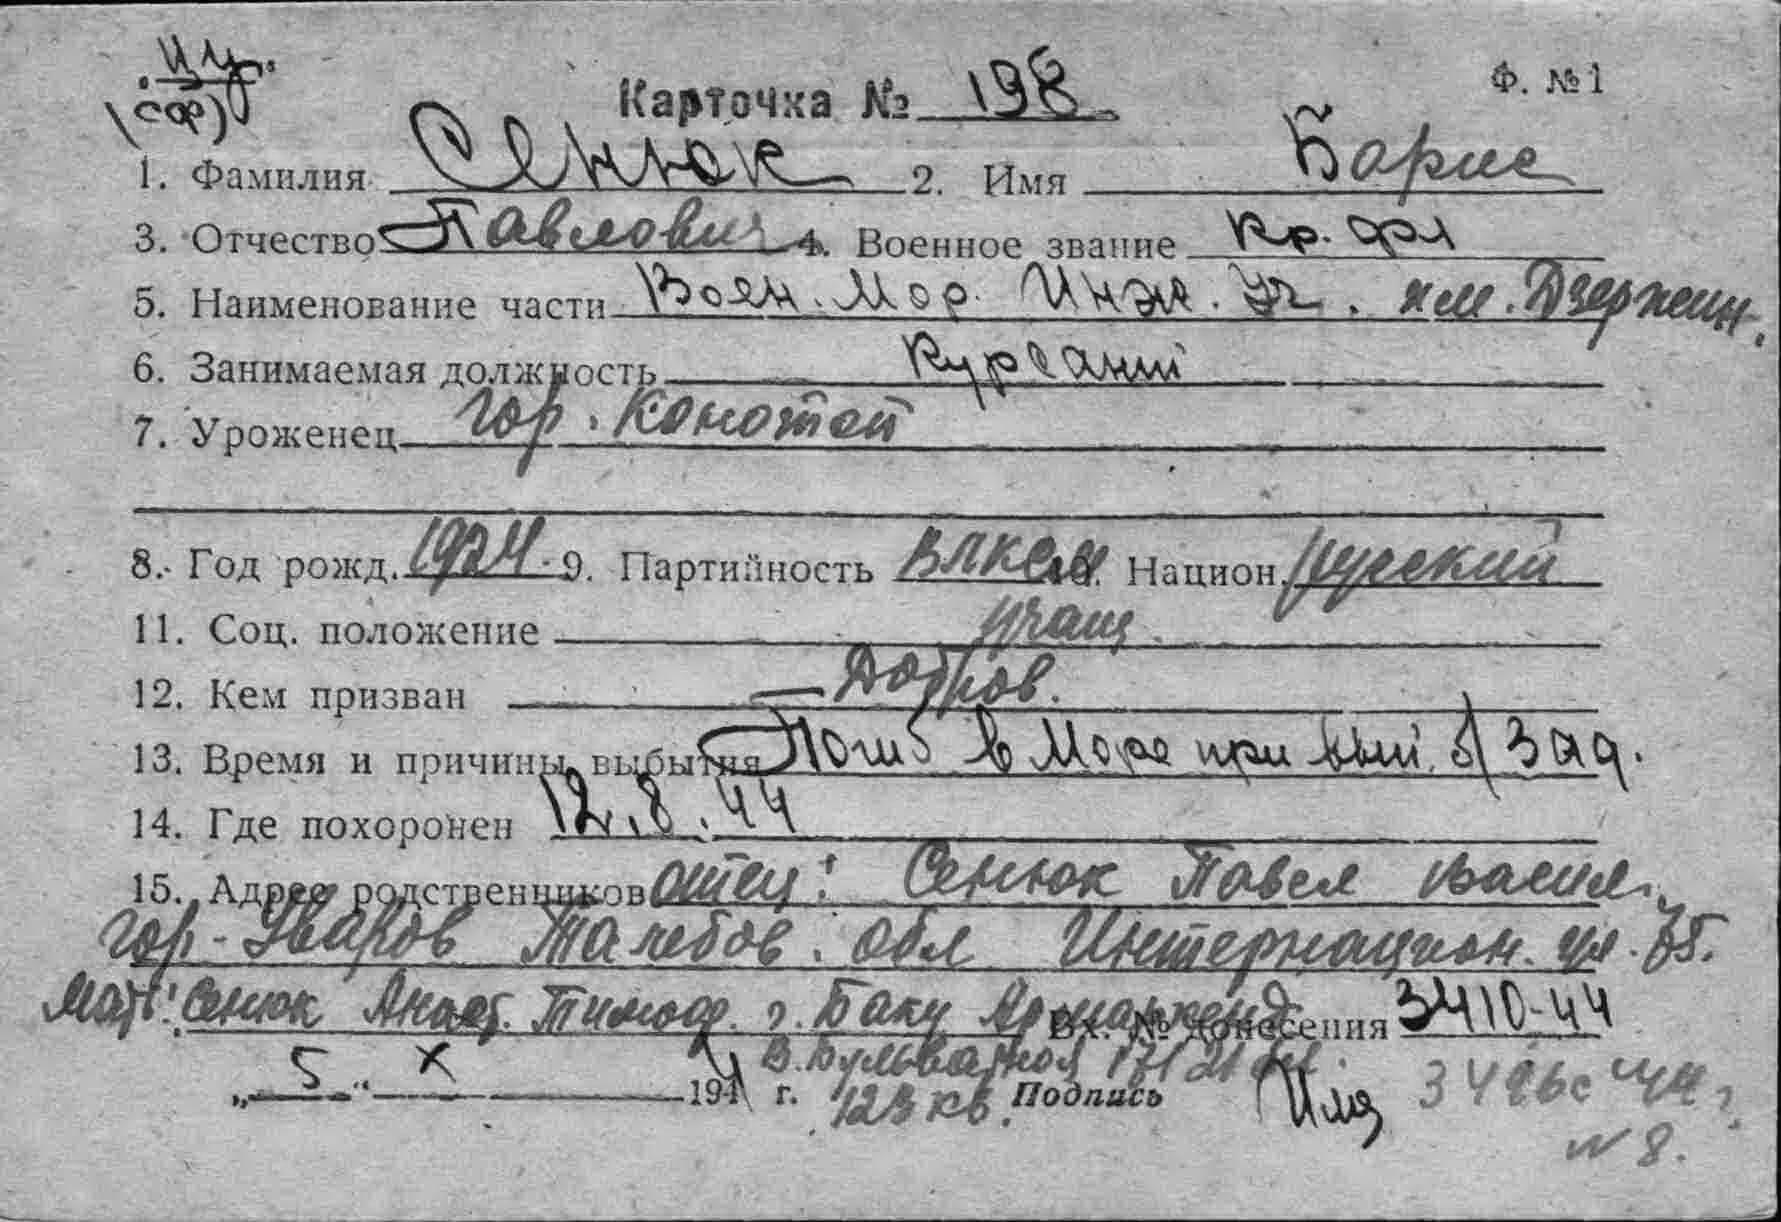 (СФ)
Карточка № 198 Ф. №1
1. Фамилия Сенюк 2. Имя Борис
3. Отчество Павлович 4. Военное звание Кр. фл
5. Наименование части Воен. Мор. Инж. Уч. им. Дзержин.
6. Занимаемая должность Курсант
7. Уроженец гор. Конотоп
8. Год рожд. 1924. 9. Партийность ВЛКСМ 10. Национ. русский
11. Соц. положение учащ.
12. Кем призван Добров.
13. Время и причины выбытия Погиб в Море при вып. б/зад.
14. Где похоронен 12.8.44
15. Адрес родственников отец: Сенюк Павел Васил.
гор. Уваров Тамбов. обл Интернацион. ул. 75.
Мать: Сенюк Анаст. Тимоф. г. Баку Арменкенд Вх. № донесения 3410-44
В. Бульварная 171
„5" X 1944 г. 123 кв. Подпись
№ 8.